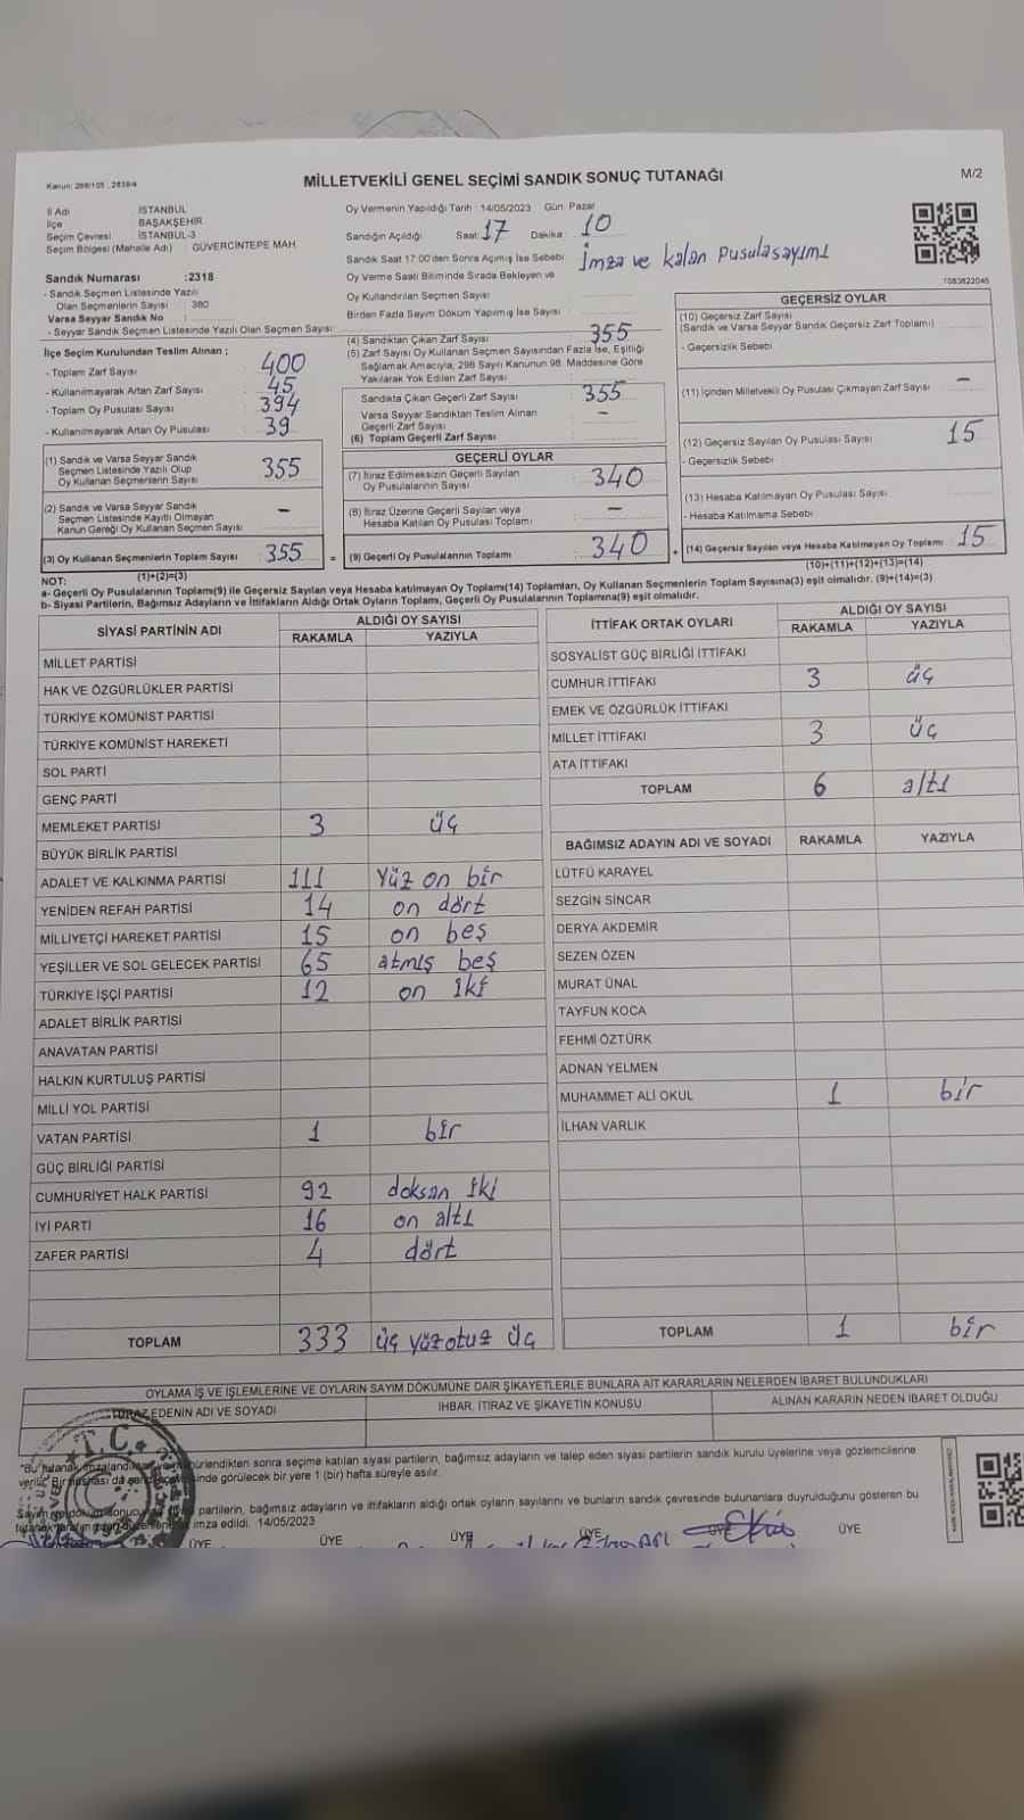 Kanun: 298/105 , 2839/4
MİLLETVEKİLİ GENEL SEÇİMİ SANDIK SONUÇ TUTANAĞI
M/2
İl Adı İSTANBUL
İlçe BAŞAKŞEHİR
Seçim Çevresi İSTANBUL-3
Seçim Bölgesi (Mahalle Adı) GÜVERCİNTEPE MAH.
Oy Vermenin Yapıldığı Tarih : 14/05/2023 Gün: Pazar
Sandığın Açıldığı Saat: 17 Dakika: 10
Sandık Saat 17:00'den Sonra Açılmış İse Sebebi İmza ve kalan pusulasayımı
Oy Verme Saati Bitiminde Sırada Bekleyen ve
Oy Kullandırılan Seçmen Sayısı
Birden Fazla Sayım Döküm Yapılmış İse Sayısı
1083822045
Sandık Numarası :2318
- Sandık Seçmen Listesinde Yazılı
Olan Seçmenlerin Sayısı : 380
Varsa Seyyar Sandık No
- Seyyar Sandık Seçmen Listesinde Yazılı Olan Seçmen Sayısı:
İlçe Seçim Kurulundan Teslim Alınan ;
- Toplam Zarf Sayısı 400
- Kullanılmayarak Artan Zarf Sayısı 45
- Toplam Oy Pusulası Sayısı 394
- Kullanılmayarak Artan Oy Pusulası 39
(1) Sandık ve Varsa Seyyar Sandık
Seçmen Listesinde Yazılı Olup
Oy Kullanan Seçmenlerin Sayısı 355
(2) Sandık ve Varsa Seyyar Sandık
Seçmen Listesinde Kayıtlı Olmayan
Kanun Gereği Oy Kullanan Seçmen Sayısı -
(3) Oy Kullanan Seçmenlerin Toplam Sayısı 355 =
(1)+(2)=(3)
(4) Sandıktan Çıkan Zarf Sayısı 355
(5) Zarf Sayısı Oy Kullanan Seçmen Sayısından Fazla İse, Eşitliği
Sağlamak Amacıyla, 298 Sayılı Kanunun 98. Maddesine Göre
Yakılarak Yok Edilen Zarf Sayısı
Sandıkta Çıkan Geçerli Zarf Sayısı 355
Varsa Seyyar Sandıktan Teslim Alınan
Geçerli Zarf Sayısı -
(6) Toplam Geçerli Zarf Sayısı
GEÇERLİ OYLAR
(7) İtiraz Edilmeksizin Geçerli Sayılan
Oy Pusulalarının Sayısı 340
(8) İtiraz Üzerine Geçerli Sayılan veya
Hesaba Katılan Oy Pusulası Toplamı -
(9) Geçerli Oy Pusulalarının Toplamı 340 +
GEÇERSİZ OYLAR
(10) Geçersiz Zarf Sayısı
(Sandık ve Varsa Seyyar Sandık Geçersiz Zarf Toplamı)
- Geçersizlik Sebebi
(11) İçinden Milletvekili Oy Pusulası Çıkmayan Zarf Sayısı -
(12) Geçersiz Sayılan Oy Pusulası Sayısı 15
- Geçersizlik Sebebi
(13) Hesaba Katılmayan Oy Pusulası Sayısı
- Hesaba Katılmama Sebebi
(14) Geçersiz Sayılan veya Hesaba Katılmayan Oy Toplamı 15
(10)+(11)+(12)+(13)=(14)
NOT:
a- Geçerli Oy Pusulalarının Toplamı(9) ile Geçersiz Sayılan veya Hesaba katılmayan Oy Toplamı(14) Toplamları, Oy Kullanan Seçmenlerin Toplam Sayısına(3) eşit olmalıdır. (9)+(14)=(3)
b- Siyasi Partilerin, Bağımsız Adayların ve İttifakların Aldığı Ortak Oyların Toplamı, Geçerli Oy Pusulalarının Toplamına(9) eşit olmalıdır.
SİYASİ PARTİNİN ADI ALDIĞI OY SAYISI
RAKAMLA YAZIYLA
MİLLET PARTİSİ
HAK VE ÖZGÜRLÜKLER PARTİSİ
TÜRKİYE KOMÜNİST PARTİSİ
TÜRKİYE KOMÜNİST HAREKETİ
SOL PARTİ
GENÇ PARTİ
MEMLEKET PARTİSİ 3 üç
BÜYÜK BİRLİK PARTİSİ
ADALET VE KALKINMA PARTİSİ 111 Yüz on bir
YENİDEN REFAH PARTİSİ 14 on dört
MİLLİYETÇİ HAREKET PARTİSİ 15 on beş
YEŞİLLER VE SOL GELECEK PARTİSİ 65 atmış beş
TÜRKİYE İŞÇİ PARTİSİ 12 on iki
ADALET BİRLİK PARTİSİ
ANAVATAN PARTİSİ
HALKIN KURTULUŞ PARTİSİ
MİLLİ YOL PARTİSİ
VATAN PARTİSİ 1 bir
GÜÇ BİRLİĞİ PARTİSİ
CUMHURİYET HALK PARTİSİ 92 doksan iki
İYİ PARTİ 16 on altı
ZAFER PARTİSİ 4 dört
TOPLAM 333 üç yüzotuz üç
İTTİFAK ORTAK OYLARI ALDIĞI OY SAYISI
RAKAMLA YAZIYLA
SOSYALİST GÜÇ BİRLİĞİ İTTİFAKI
CUMHUR İTTİFAKI 3 üç
EMEK VE ÖZGÜRLÜK İTTİFAKI
MİLLET İTTİFAKI 3 üç
ATA İTTİFAKI
TOPLAM 6 altı
BAĞIMSIZ ADAYIN ADI VE SOYADI RAKAMLA YAZIYLA
LÜTFÜ KARAYEL
SEZGİN SİNCAR
DERYA AKDEMİR
SEZEN ÖZEN
MURAT ÜNAL
TAYFUN KOCA
FEHMİ ÖZTÜRK
ADNAN YELMEN
MUHAMMET ALİ OKUL 1 bir
İLHAN VARLIK
TOPLAM 1 bir
OYLAMA İŞ VE İŞLEMLERİNE VE OYLARIN SAYIM DÖKÜMÜNE DAİR ŞİKAYETLERLE BUNLARA AİT KARARLARIN NELERDEN İBARET BULUNDUKLARI
EDENİN ADI VE SOYADI İHBAR, İTİRAZ VE ŞİKAYETİN KONUSU ALINAN KARARIN NEDEN İBARET OLDUĞU
T.C.
"Bu tutanak sonra seçime katılan siyasi partilerin, bağımsız adayların ve talep eden siyasi partilerin sandık kurulu üyelerine veya gözlemcilerine
görülecek bir yere 1 (bir) hafta süreyle asılır.
partilerin, bağımsız adayların ve ittifakların aldığı ortak oyların sayılarını ve bunların sandık çevresinde bulunanlara duyrulduğunu gösteren bu
imza edildi. 14/05/2023
ÜYE ÜYE ÜYE ÜYE ÜYE ÜYE